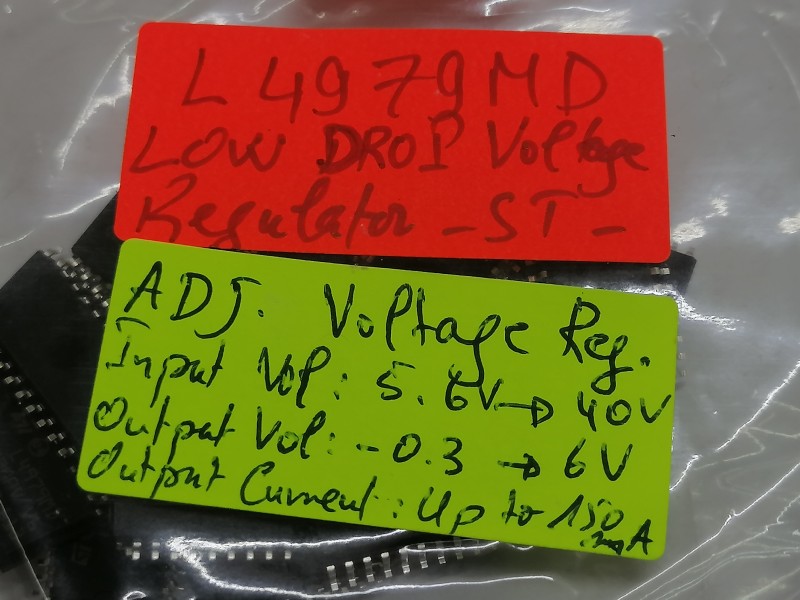 L4979MD
LOW DROP Voltage
Regulator -ST-
ADJ. Voltage Reg.
Input Vol: 5.6V → 40V
Output Vol: -0.3 → 6V
Output Current: Up to 150 mA